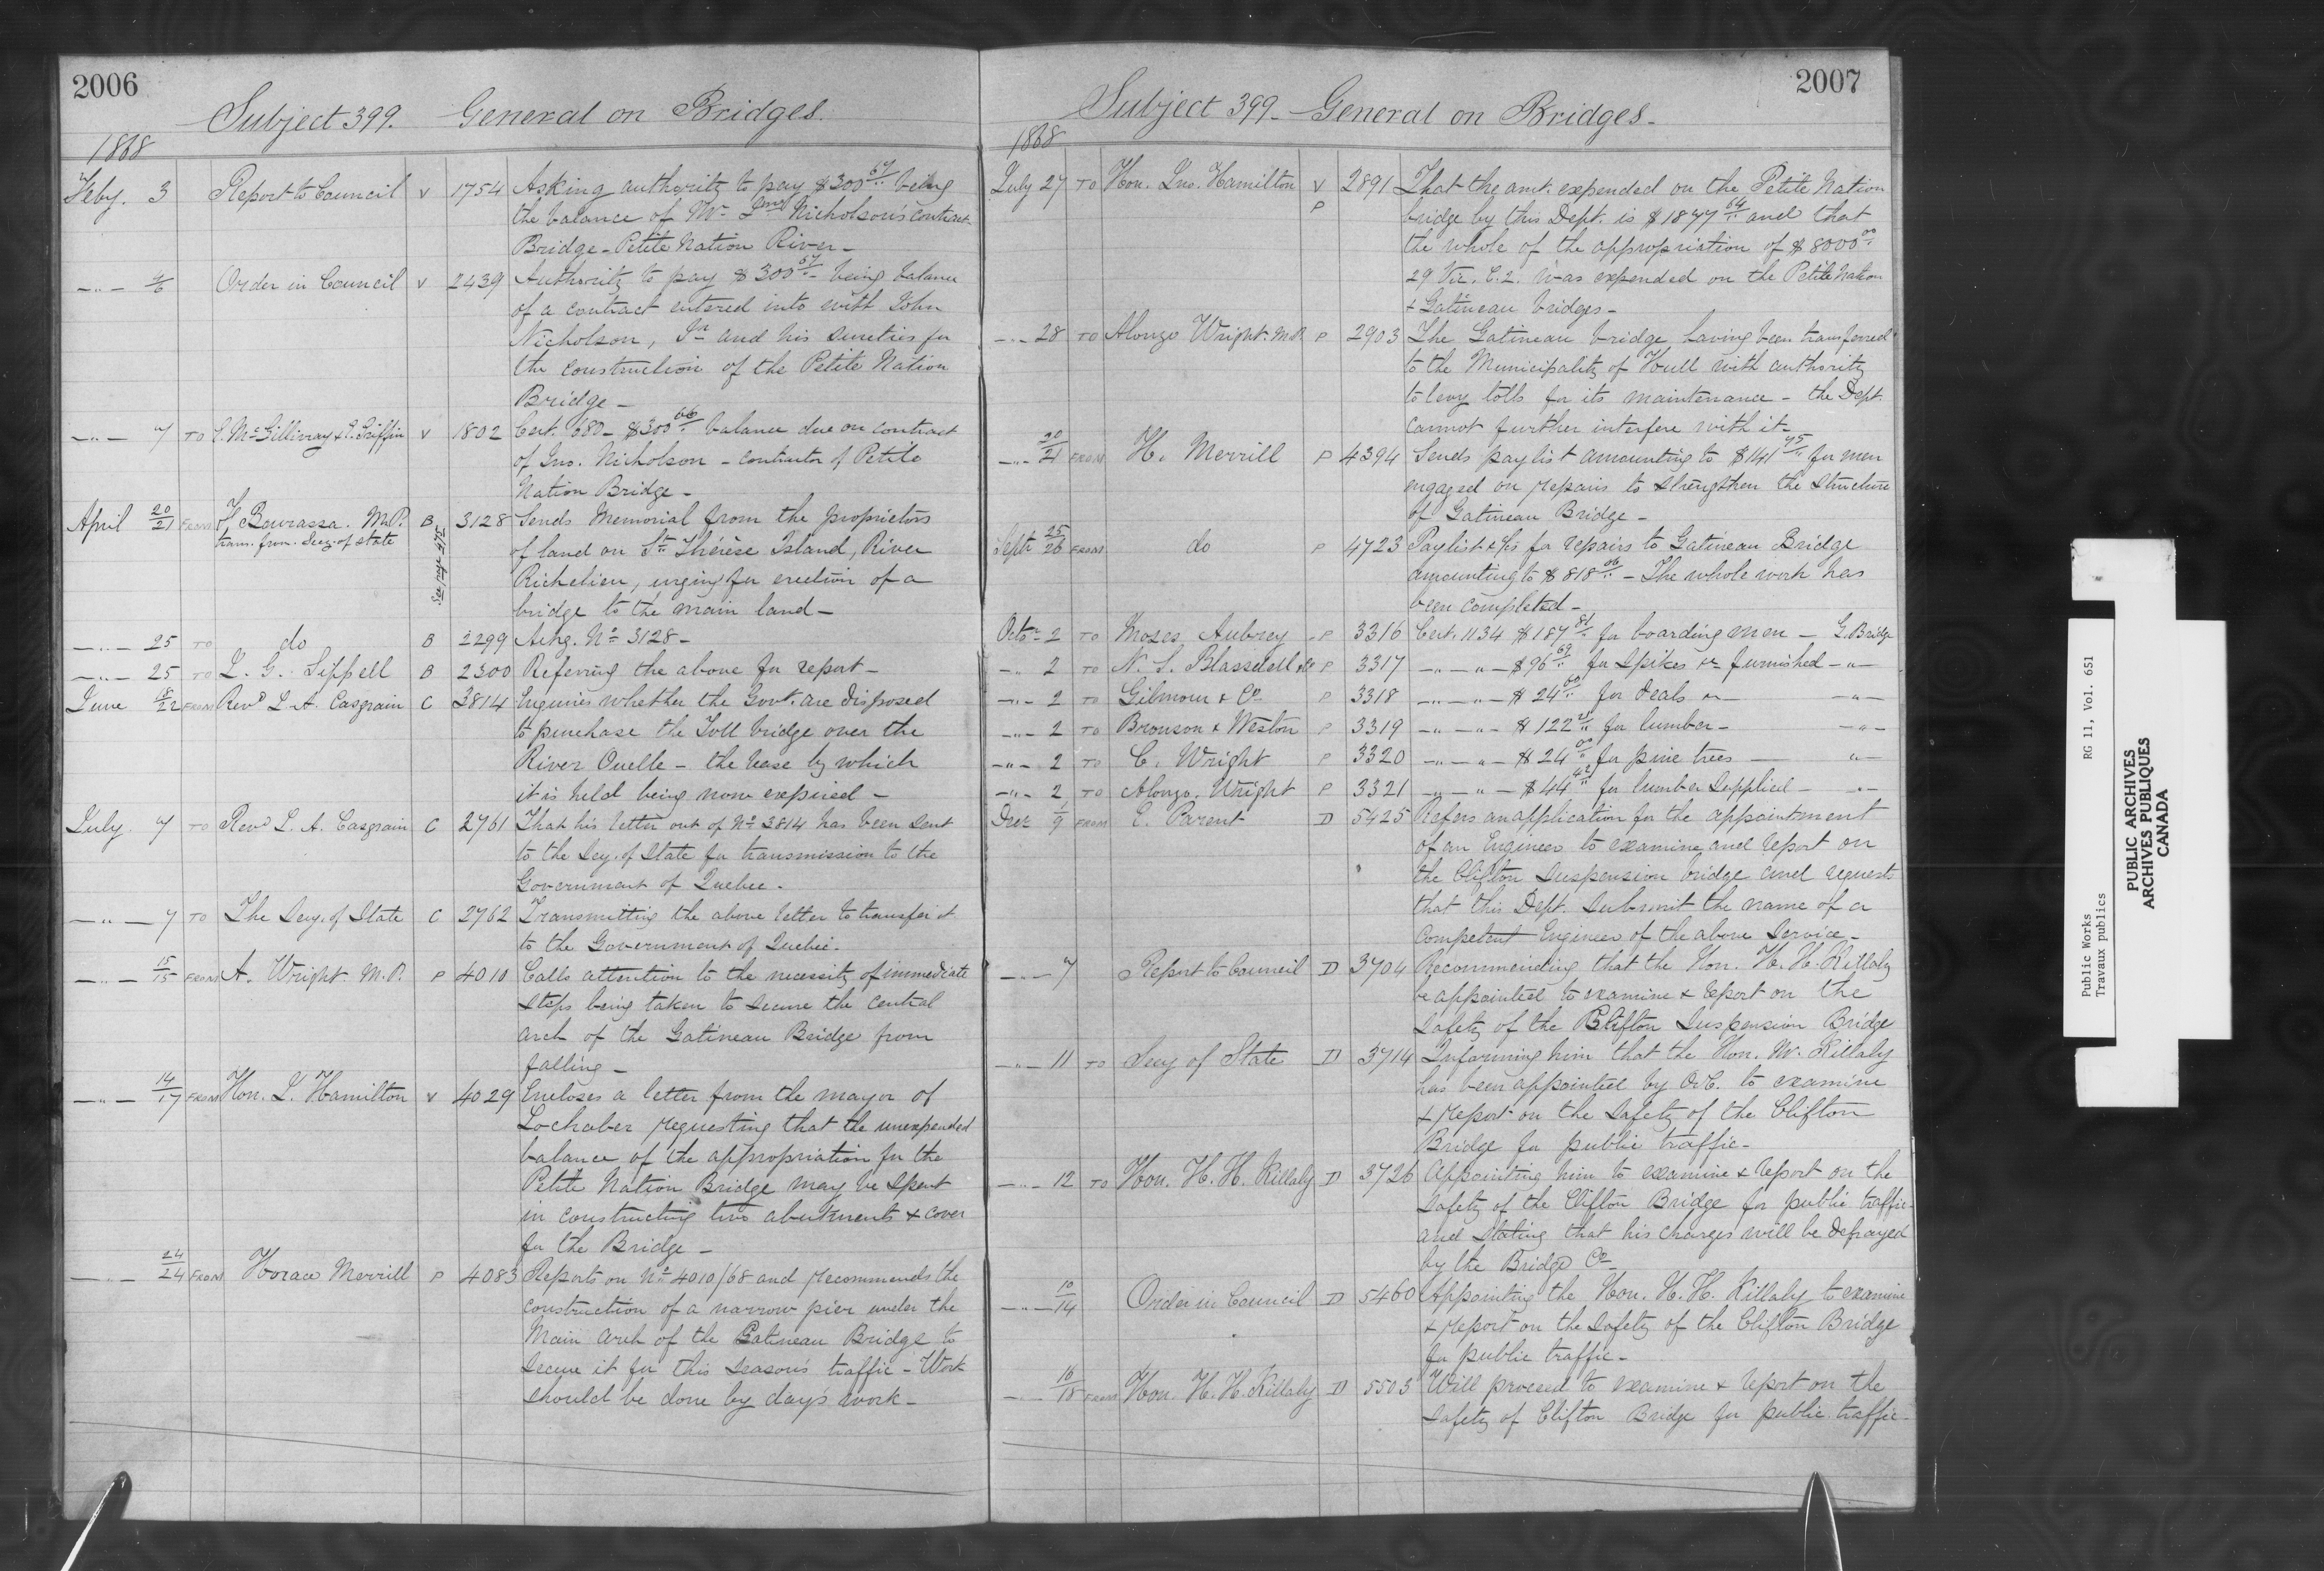 2006
Subject 399. General on Bridges.
1868
Feby. 3 Report to Council V 1754 Asking authority to pay $300 67 being
the balance of Mr Jno Nicholson's contract
Bridge - Petite Nation River -
-"- 4/6 Order in Council V 2439 Authority to pay $300 67 - being balance
of a contract entered into with John
Nicholson, Jr and his sureties for
the construction of the Petite Nation
Bridge -
-"- 7 TO McGillivray & Griffin V 1802 Cert. 680 - $300 66 balance due on contract
of Jno. Nicholson - contractor of Petite
Nation Bridge -
April 20/21 FROM F. Bourassa. M.P. B 3128 Sends Memorial from the proprietors
trans. from Secy. of State
See page 472
of land on St. Thérèse Island, River
Richelieu, urging for erection of a
bridge to the main land -
-"- 25 TO do B 2299 Ackg. No 3128 -
-"- 25 TO L. G. Sippell B 2300 Referring the above for report -
June 18/22 FROM Revd L. A. Casgrain C 3814 Enquires whether the Govt. are disposed
to purchase the Toll bridge over the
River Ouelle - the lease by which
it is held being now expired -
July. 7 TO Revd L. A. Casgrain C 2761 That his letter out of No 3814 has been sent
to the Secy. of State for transmission to the
Government of Quebec -
-"- 7 TO The Secy. of State C 2762 Transmitting the above letter to transfer it
to the Government of Quebec.
-"- 15/15 FROM A. Wright. M.P. P 4010 Calls attention to the necessity of immediate
steps being taken to secure the central
arch of the Gatineau Bridge from
falling -
-"- 14/17 FROM Hon. J. Hamilton V 4029 Encloses a letter from the mayor of
Lochaber requesting that the unexpended
balance of the appropriation for the
Petite Nation Bridge may be spent
in constructing two abutments & cover
for the Bridge -
-"- 24/24 FROM Horace Merrill P 4083 Reports on No 4010/68 and recommends the
construction of a narrow pier under the
Main arch of the Gatineau Bridge to
secure it for this season's traffic - Work
should be done by day's work -
2007
Subject 399 - General on Bridges -
1868
July 27 TO Hon. Jno. Hamilton V 2891 That the amt. expended on the Petite Nation
P bridge by this Dept. is $1877 64 and that
the whole of the appropriation of $8000 00
29 Vic. C. 2. was expended on the Petite Nation
& Gatineau bridges -
-"- 28 TO Alonzo Wright. M.P. P 2903 The Gatineau bridge having been transferred
to the Municipality of Hull with authority
to levy tolls for its maintenance - the Dept.
cannot further interfere with it -
-"- 20/21 FROM H. Merrill P 4394 Sends paylist amounting to $141 75 for men
engaged on repairs to strengthen the structure
of Gatineau Bridge -
Septr 25/26 FROM do P 4723 Paylist &c for repairs to Gatineau Bridge
amounting to $818 06 - The whole work has
been completed -
Octor 2 TO Moses Aubrey P 3316 Cert. 1134 $187 81 for boarding men - G. Bridge
-"- 2 TO N. S. Blasdell &Co P 3317 -"- -"- $96 69 for spikes &c furnished -"-
-"- 2 TO Gilmour & Co P 3318 -"- -"- $24 60 for deals -"-
-"- 2 TO Bronson & Weston P 3319 -"- -"- $122 21 for lumber - -"-
-"- 2 TO C. Wright P 3320 -"- -"- $24 00 for pine trees - -"-
-"- 2 TO Alonzo Wright P 3321 -"- -"- $44 42 for lumber supplied - -"-
Decr 1/9 FROM E. Parent D 5425 Refers an application for the appointment
of an Engineer to examine and report on
the Clifton Suspension bridge and requests
that this Dept. submit the name of a
competent Engineer of the above service -
-"- 7 Report to Council D 3704 Recommending that the Hon. H. H. Killaly
be appointed to examine & report on the
safety of the Clifton Suspension Bridge
-"- 11 TO Secy of State D 3714 Informing him that the Hon. Mr. Killaly
has been appointed by O.C. to examine
& report on the safety of the Clifton
Bridge for public traffic -
-"- 12 TO Hon. H. H. Killaly D 3726 Appointing him to examine & report on the
safety of the Clifton Bridge for public traffic -
and stating that his charges will be defrayed
by the Bridge Co -
-"- 10/14 Order in Council D 5460 Appointing the Hon. H. H. Killaly to examine
& report on the safety of the Clifton Bridge
for public traffic -
-"- 16/18 FROM Hon. H. H. Killaly D 5503 Will proceed to examine & report on the
safety of Clifton Bridge for public traffic -
Public Works RG 11, Vol. 651
Travaux publics
PUBLIC ARCHIVES
ARCHIVES PUBLIQUES
CANADA